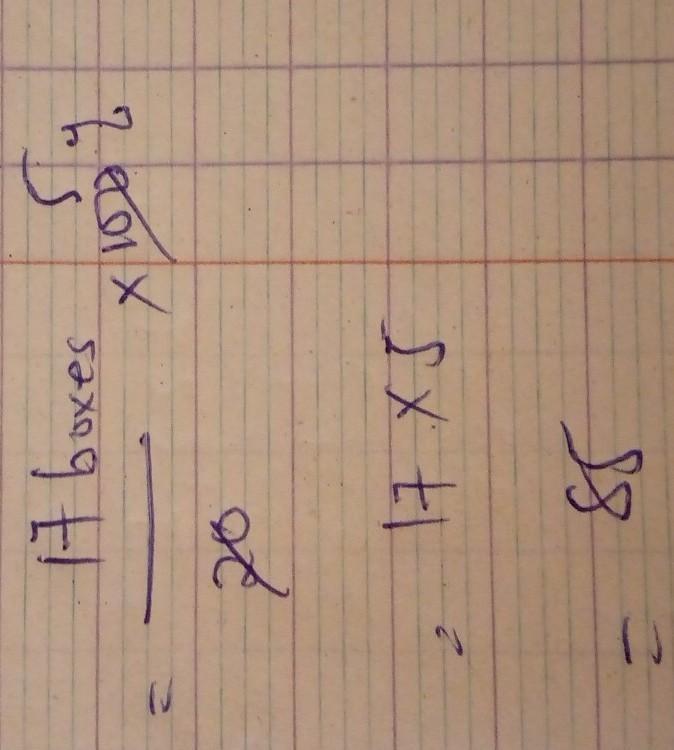 = 17 boxes / 20 × 100 % 5
= 17 × 5
= 85